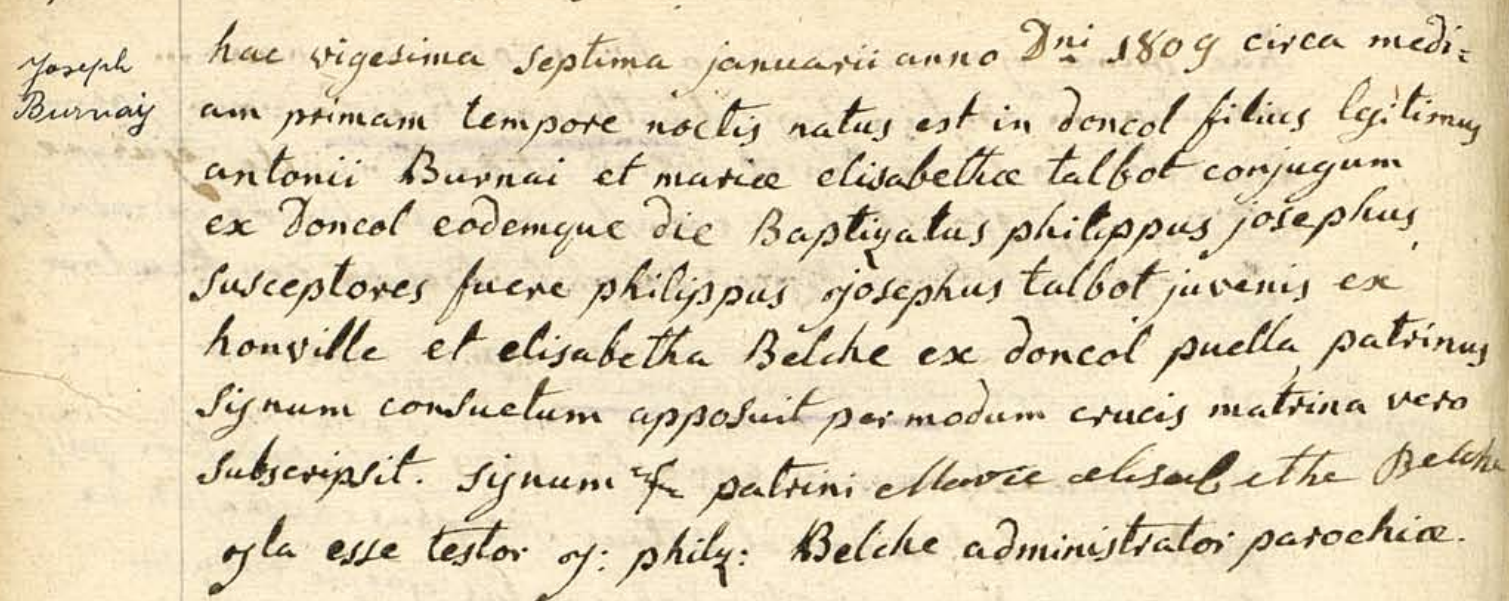 Joseph
Burnay
hac vigesima septima januarii anno Dni 1809 circa medi=
am primam tempore noctis natus est in doncol filius lgitimus
antonii Burnai et mariæ elisabethæ talbot conjugum
ex Doncol eodemque die Baptizatus philippus josephus
susceptores fuere philippus josephus talbot juvenis ex
honville et elisabetha Belche ex doncol puella patrinus
signum consuetum apposuit per modum crucis matrina vero
subscripsit. signum patrini Marie elisabethe Belche
ita esse testor j: phily: Belche administrator parochiæ.